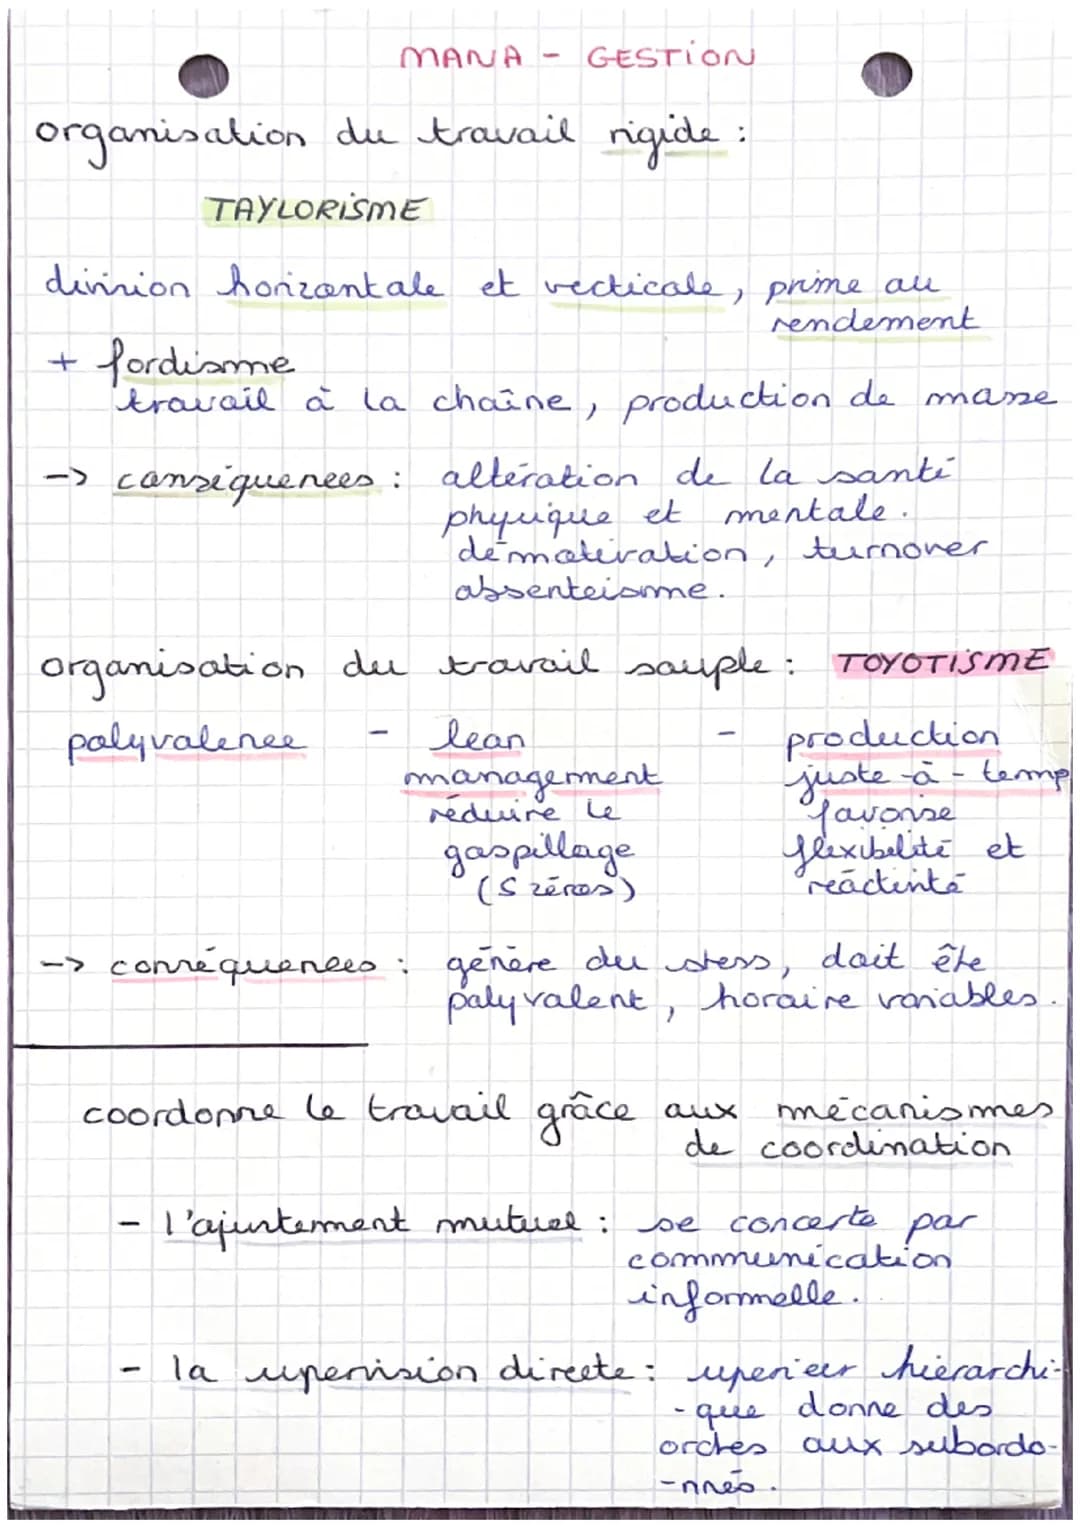 MANA - GESTION
organisation du travail rigide :
TAYLORISME
division horizontale et verticale, prime au
rendement
+ fordisme
travail à la chaîne, production de masse
-> conséquences : altération de la santé
physique et mentale.
démotivation, turnover
absenteisme.
organisation du travail souple : TOYOTISME
polyvalence - lean - production
management juste-à-temp
réduire le favorise
gaspillage flexibilité et
(5 zéros) réactivité
-> conséquences : génère du stess, doit être
polyvalent, horaire variables.
coordonne le travail grâce aux mécanismes
de coordination
- l'ajustement mutuel : se concerte par
communication
informelle.
- la supervision directe : supérieur hiérarchi-
-que donne des
ordres aux subordo-
-nnés.